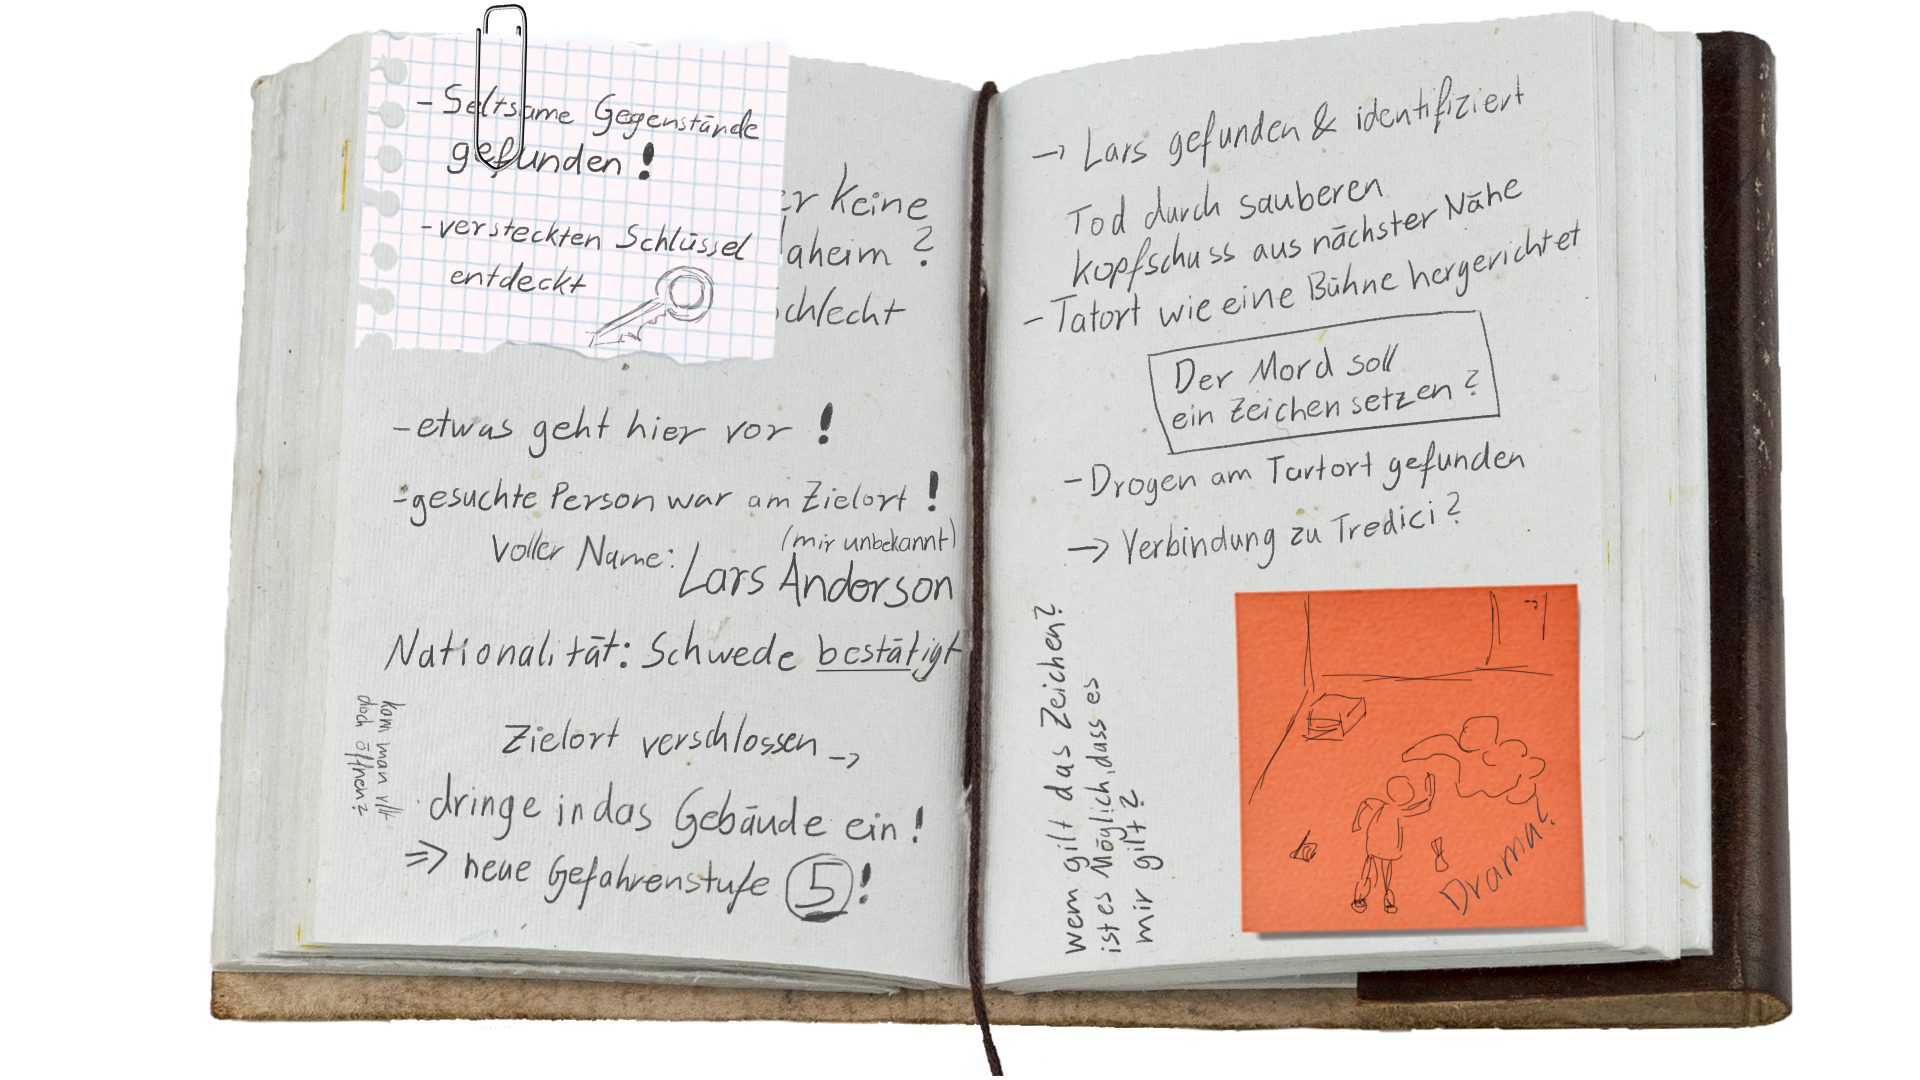 - Seltsame Gegenstände
gefunden!
- versteckten Schlüssel
entdeckt
er keine
aheim?
chlecht
- etwas geht hier vor!
- gesuchte Person war am Zielort!
(mir unbekannt)
Voller Name: Lars Anderson
Nationalität: Schwede bestätigt
Zielort verschlossen →
kann man vllt
doch öffnen?
dringe in das Gebäude ein!
⇒ neue Gefahrenstufe 5!
→ Lars gefunden & identifiziert
Tod durch sauberen
kopfschuss aus nächster Nähe
- Tatort wie eine Bühne hergerichtet
Der Mord soll
ein Zeichen setzen?
- Drogen am Tartort gefunden
→ Verbindung zu Tredici?
wem gilt das Zeichen?
ist es Möglich, dass es
mir gilt?
Drama?